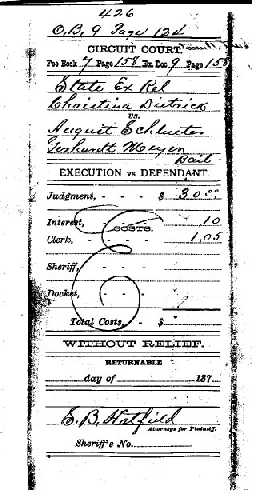 426
O.B. 9 Page 124
CIRCUIT COURT,
Fee Book 7 Page 158 Ex. Doc. 9 Page 158
State Ex Rel
Christina Dietrick
vs.
August Schluter
Gerhardt Meyer
Bail
EXECUTION vs DEFENDANT.
Judgment, - - - $ 30 00
Interest, 10
COSTS.
Clerk, - - - 1.05
Sheriff, - - -
Docket, - - -
Total Costs, - - $
WITHOUT RELIEF.
RETURNABLE
day of 187
E. B. Hatfield
Attorneys for Plaintiff.
Sheriff's No.